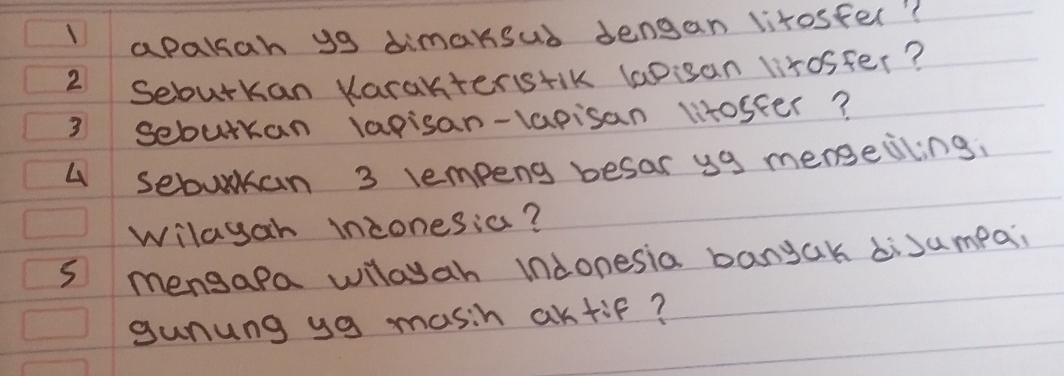 1 apakah yg dimaksud dengan litosfer?
2 Sebutkan Karakteristik lapisan litosfer?
3 Sebutkan lapisan-lapisan litosfer?
4 Sebutkan 3 lempeng besar yg mengelilingi
wilayah indonesia?
5 mengapa wilayah Indonesia banyak dijumpai
gunung yg masih aktif?